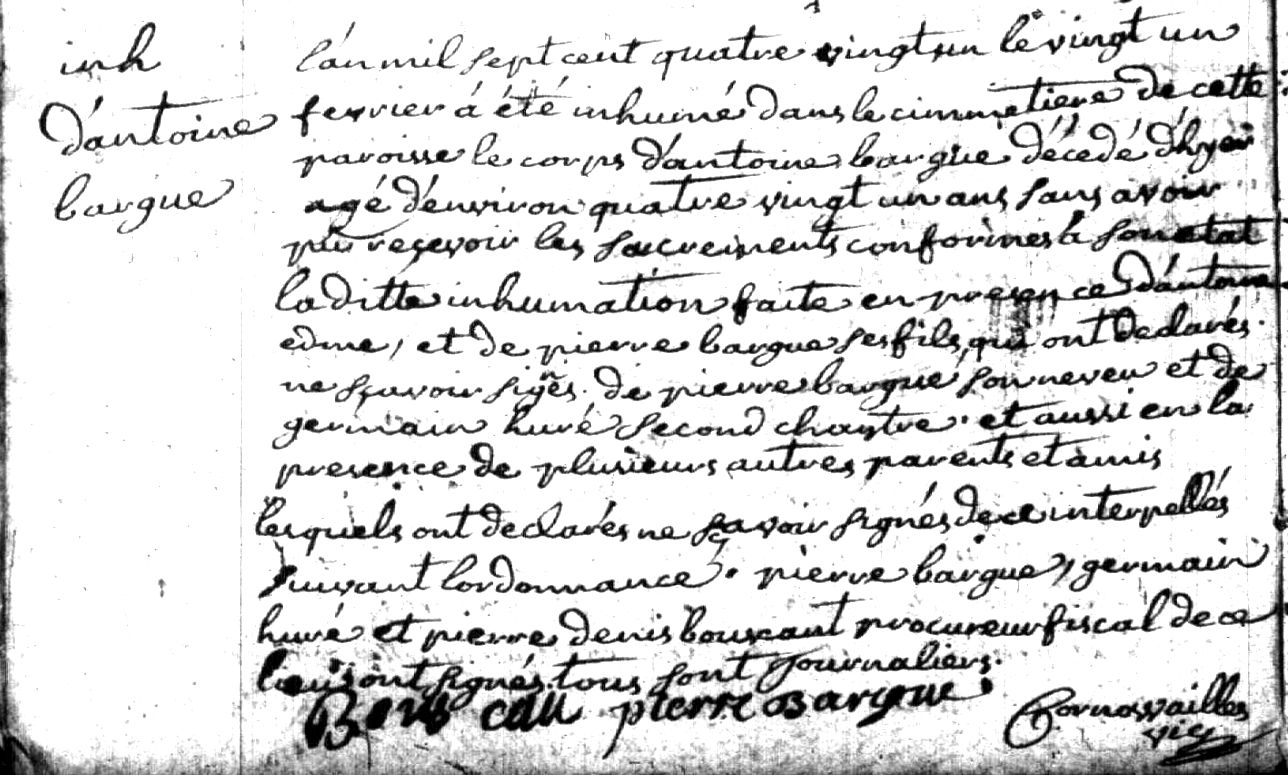 inh
d'antoine
bargue
l'an mil sept cent quatre vingt un le vingt un
fevrier á été inhumé dans le cimmetiere de cette
paroisse le corps d'antoine bargue décedé d'hyer
agé d'environ quatre vingt un ans sans avoir
pu reçevoir les sacrements conformes à son etat
la ditte inhumation faite en presence d'antoine
edme, et de pierre bargue ses fils, qui ont declarés
ne sçavoir sigñes. de pierre bargue son neveu et de
germain huré second chantre. et aussi en la
presence de plusieurs autres parents et amis
lesquels ont declarés ne sçavoir signés de ce interpellés
suivant lordonnance. pierre bargue, germain
huré et pierre denis procureur fiscal de ce
ont signés. tous sont journaliers.
pierre Bargue
Cornasvailles
vic